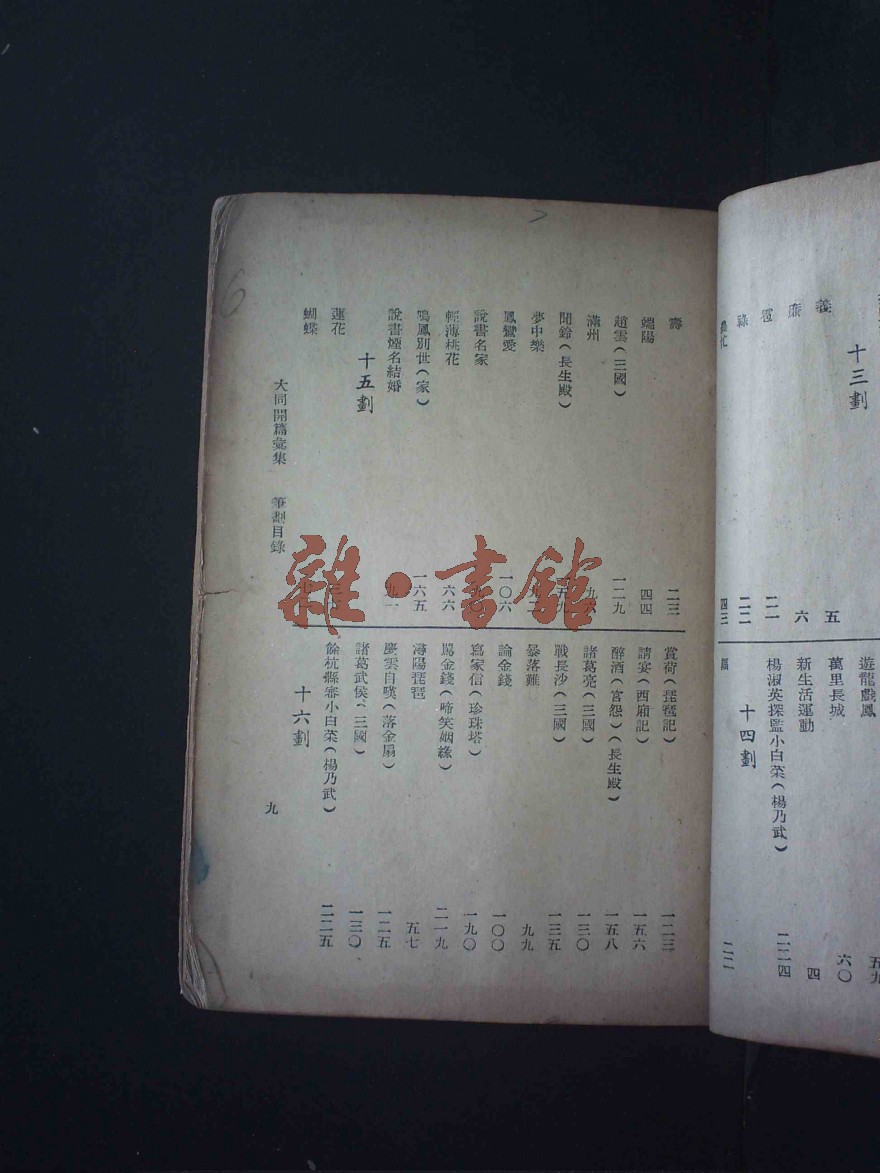 十三劃
義
廉 五
雹 六
祿 二一
二二
四三
遊龍戲鳳 五九
萬里長城 六〇
新生活運動 四
楊淑英探監小白菜(楊乃武) 二二四
十四劃
二二
壽 二三
端陽 四四
趙雲(三國) 一二九
滿州 九六
聞鈴(長生殿)
夢中樂
鳳鸞愛 一〇六
說書名家
輕薄桃花 六六
鳴鳳別世(家) 一六五
說書煙名結婚 九一
十五劃
蓮花
蝴蝶
賞荷(琵琶記) 一二三
請宴(西廂記) 一五六
醉酒(宮怨)(長生殿) 一五八
諸葛亮(三國) 一三〇
戰長沙(三國) 一三五
暴落難 九九
論金錢 一〇〇
寫家信(珍珠塔) 一九〇
罵金錢(啼笑姻緣) 二一九
潯陽琵琶 五七
慶雲自嘆(落金扇) 一二五
諸葛武侯(三國) 一三〇
十六劃
餘杭縣審小白菜(楊乃武) 二二五
大同開篇彙集 筆劃目錄
九
雜·書館
6